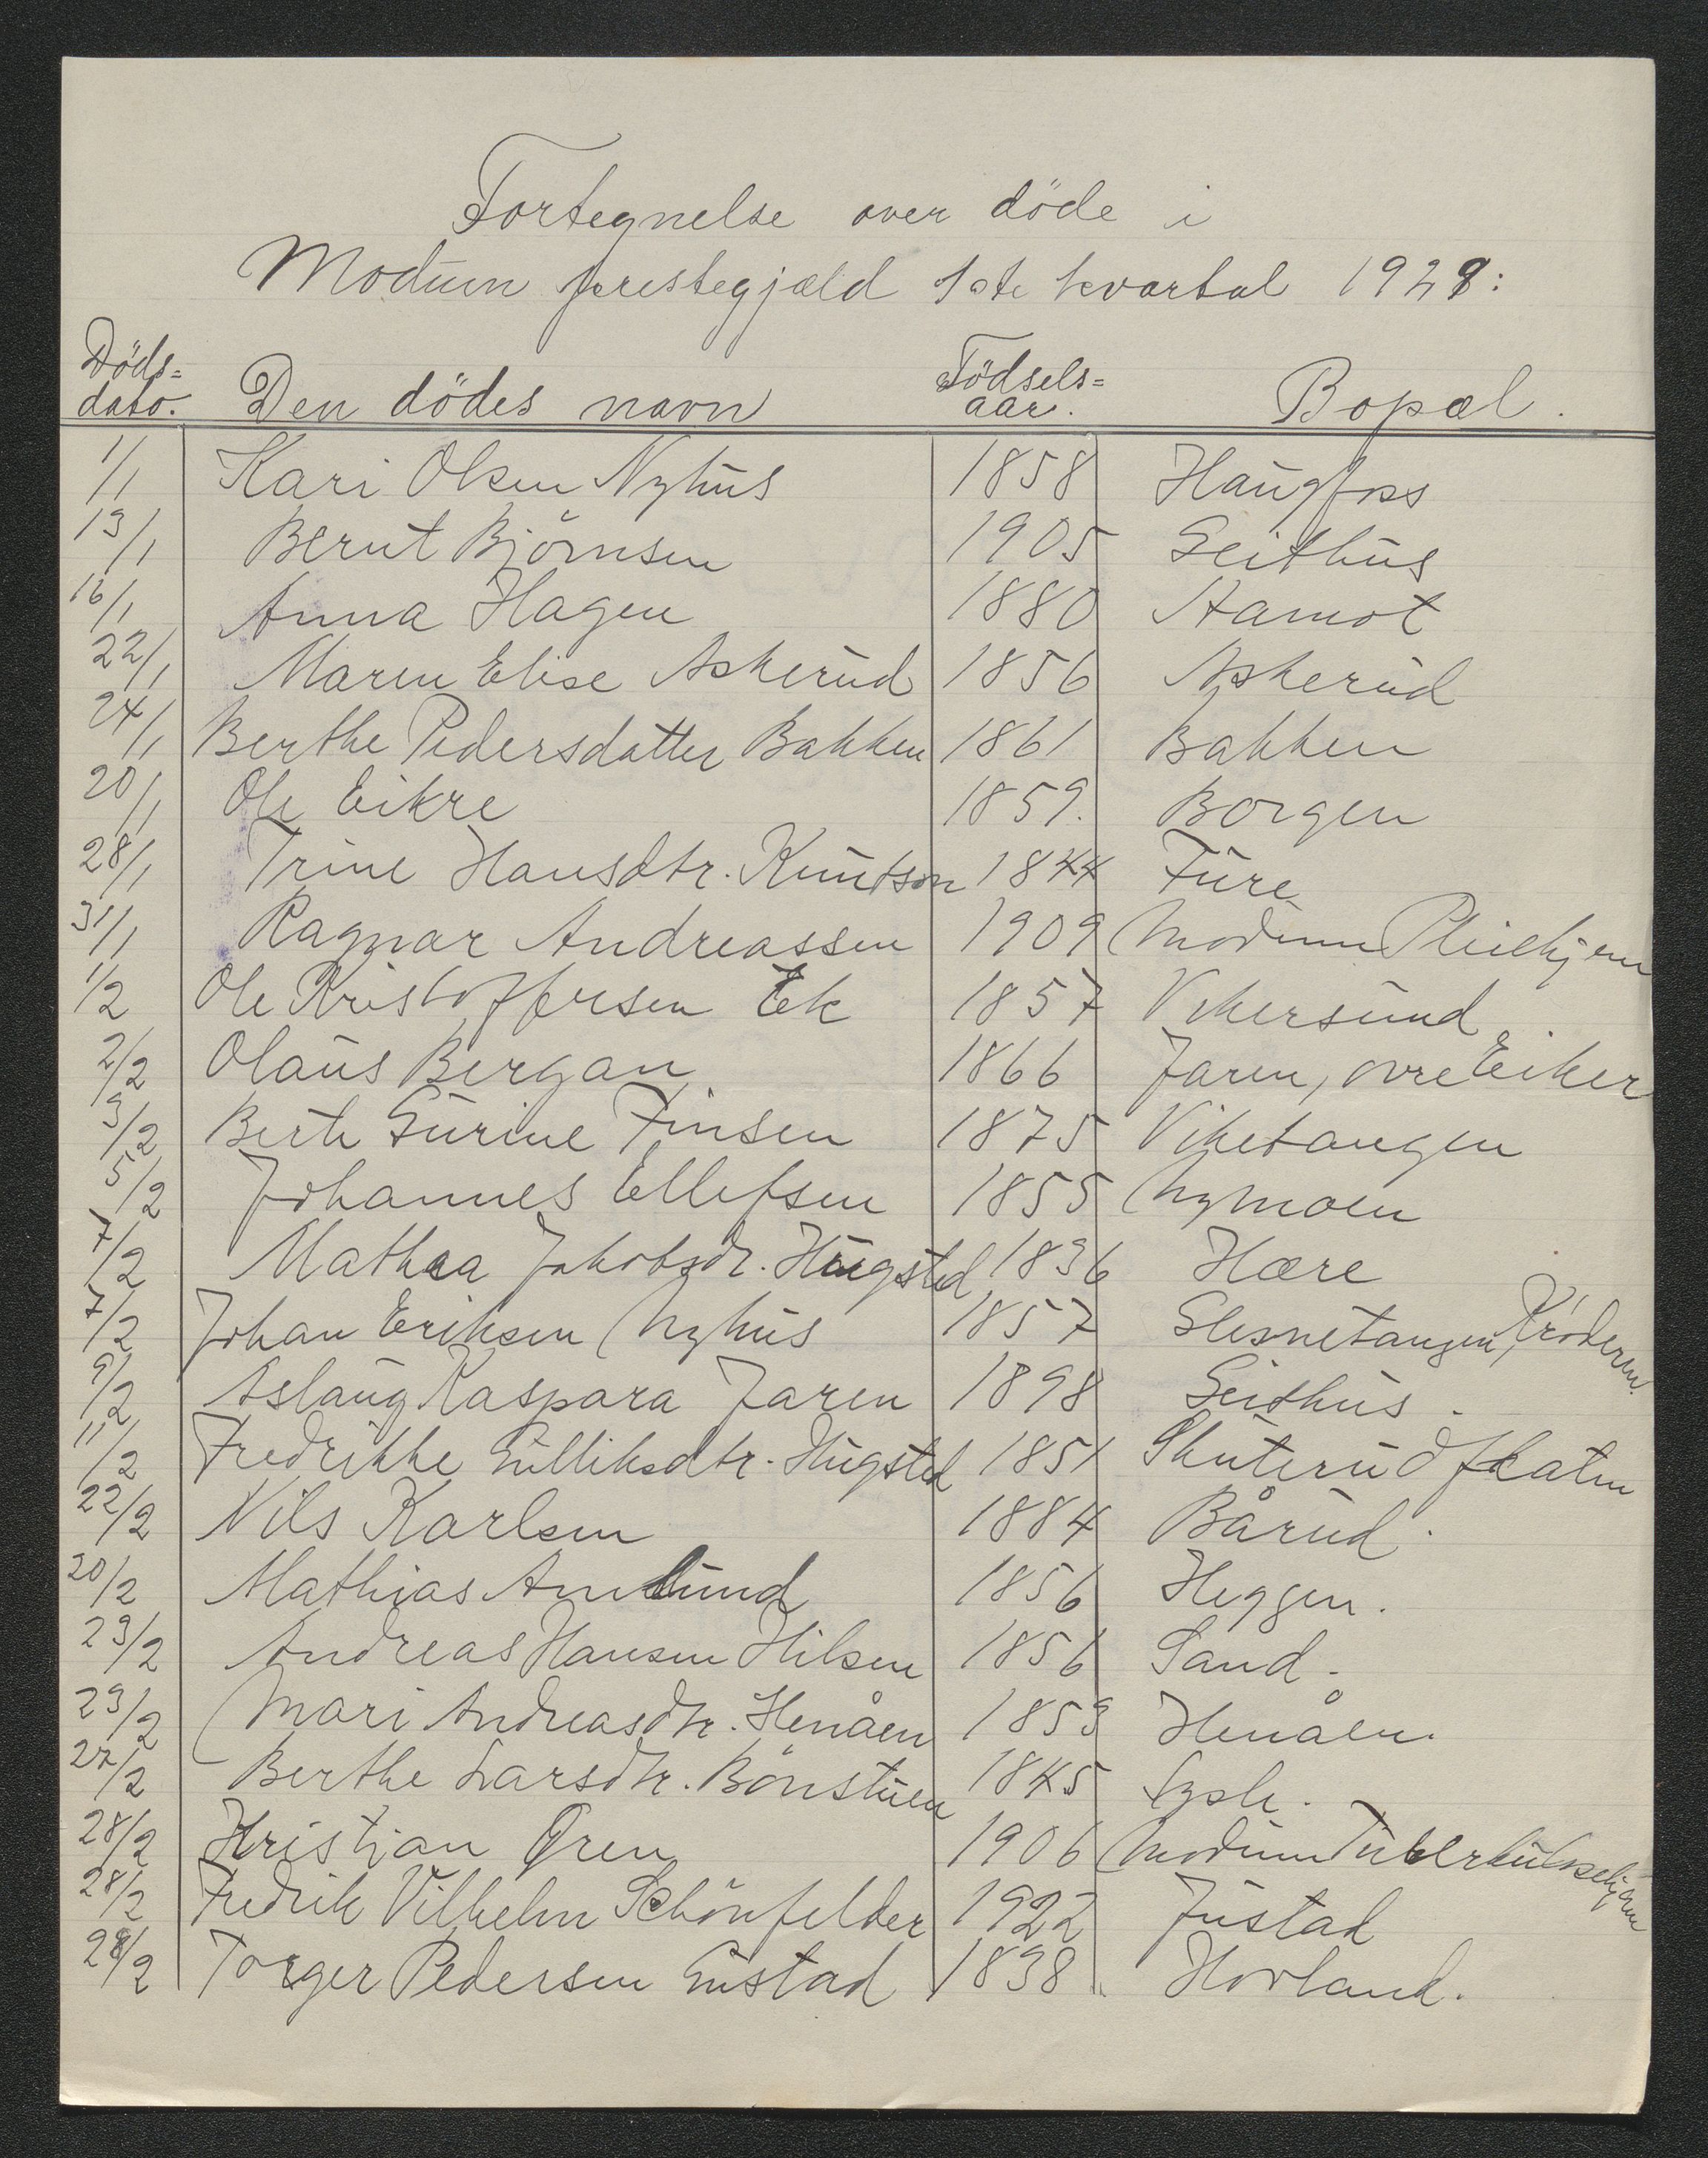 Fortegnelse over döde i
Modum prestegjæld 1ste kvartal 1928:
Döds=dato. Den dödes navn Födsels=aar. Bopæl.
1/1 Kari Olsen Nyhus 1858 Haugfoss
13/1 Bernt Björnsen 1905 Geithus
16/1 Anna Hagen 1880 Aamot
22/1 Maren Elise Askerud 1856 Askerud
24/1 Berthe Pedersdatter Bakken 1861 Bakken
20/1 Ole Eikre 1859. Borgen
28/1 Trine Hansdtr. Knutson 1844 Fure
31/1 Ragnar Andreassen 1909 Modum Pleiehjem
1/2 Ole Kristoffersen Ek 1857 Vikersund
2/2 Olaus Bergan 1866 Jaren, övre Eiker
3/2 Berte Gurine Finsen 1875 Viketangen
5/2 Johannes Ellefsen 1855 Nymoen
7/2 Mathea Jakobsdr. Hugsted 1836 Hære
7/2 Johan Eriksen Nyhus 1857 Slesnetangen, Kröderen.
9/2 Aslaug Kaspara Jaren 1898 Geithus.
11/2 Fredrikke Gulliksdtr. Hugsted 1851 Skuterudflaten
22/2 Nils Karlsen 1884 Bårud.
20/2 Mathias Amlund 1856 Heggen.
23/2 Andreas Hansen Hilsen 1856 Sand.
23/2 Mari Andreasdtr. Henåen 1853 Henåen.
27/2 Berthe Larsdtr. Bönstuen 1845
28/2 Kristian Gren 1906 Modum Tuberkulosehjem
28/2 Fredrik Vilhelm Schönfelder 1922 Justad
28/2 Torger Pedersen Gustad 1838 Hovland.